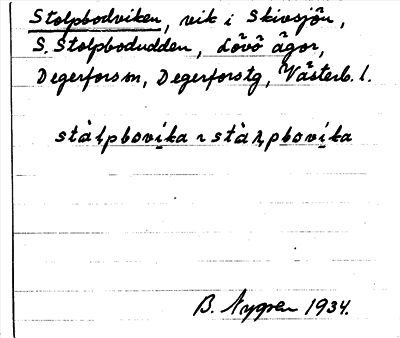 Stolpbodviken, vik i Skivsjön,
S. Stolpbodudden, Lövö ägor,
Degerfors sn, Degerfors tg, Västerb. l.
stàl̥pbovi̱ka ~ stàl̥pbovi̱ka
B. Nygren 1934.